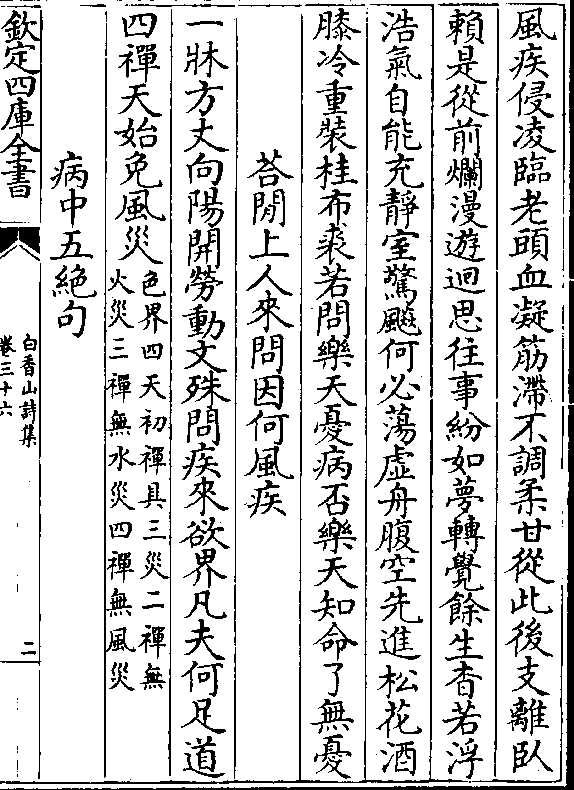 風疾侵凌臨老頭血凝筋滯不調柔甘從此後支離臥
賴是從前爛漫遊迴思往事紛如夢轉覺餘生杳若浮
浩氣自能充靜室驚飈何必蕩虛舟腹空先進松花酒
膝冷重裝桂布裘若問樂天憂病否樂天知命了無憂
荅閒上人來問因何風疾
一牀方丈向陽開勞動文殊問疾來欲界凡夫何足道
四禪天始免風災色界四天初禪具三災二禪無
火災三禪無水災四禪無風災
病中五絶句
欽定四庫全書
白香山詩集
卷三十六
二